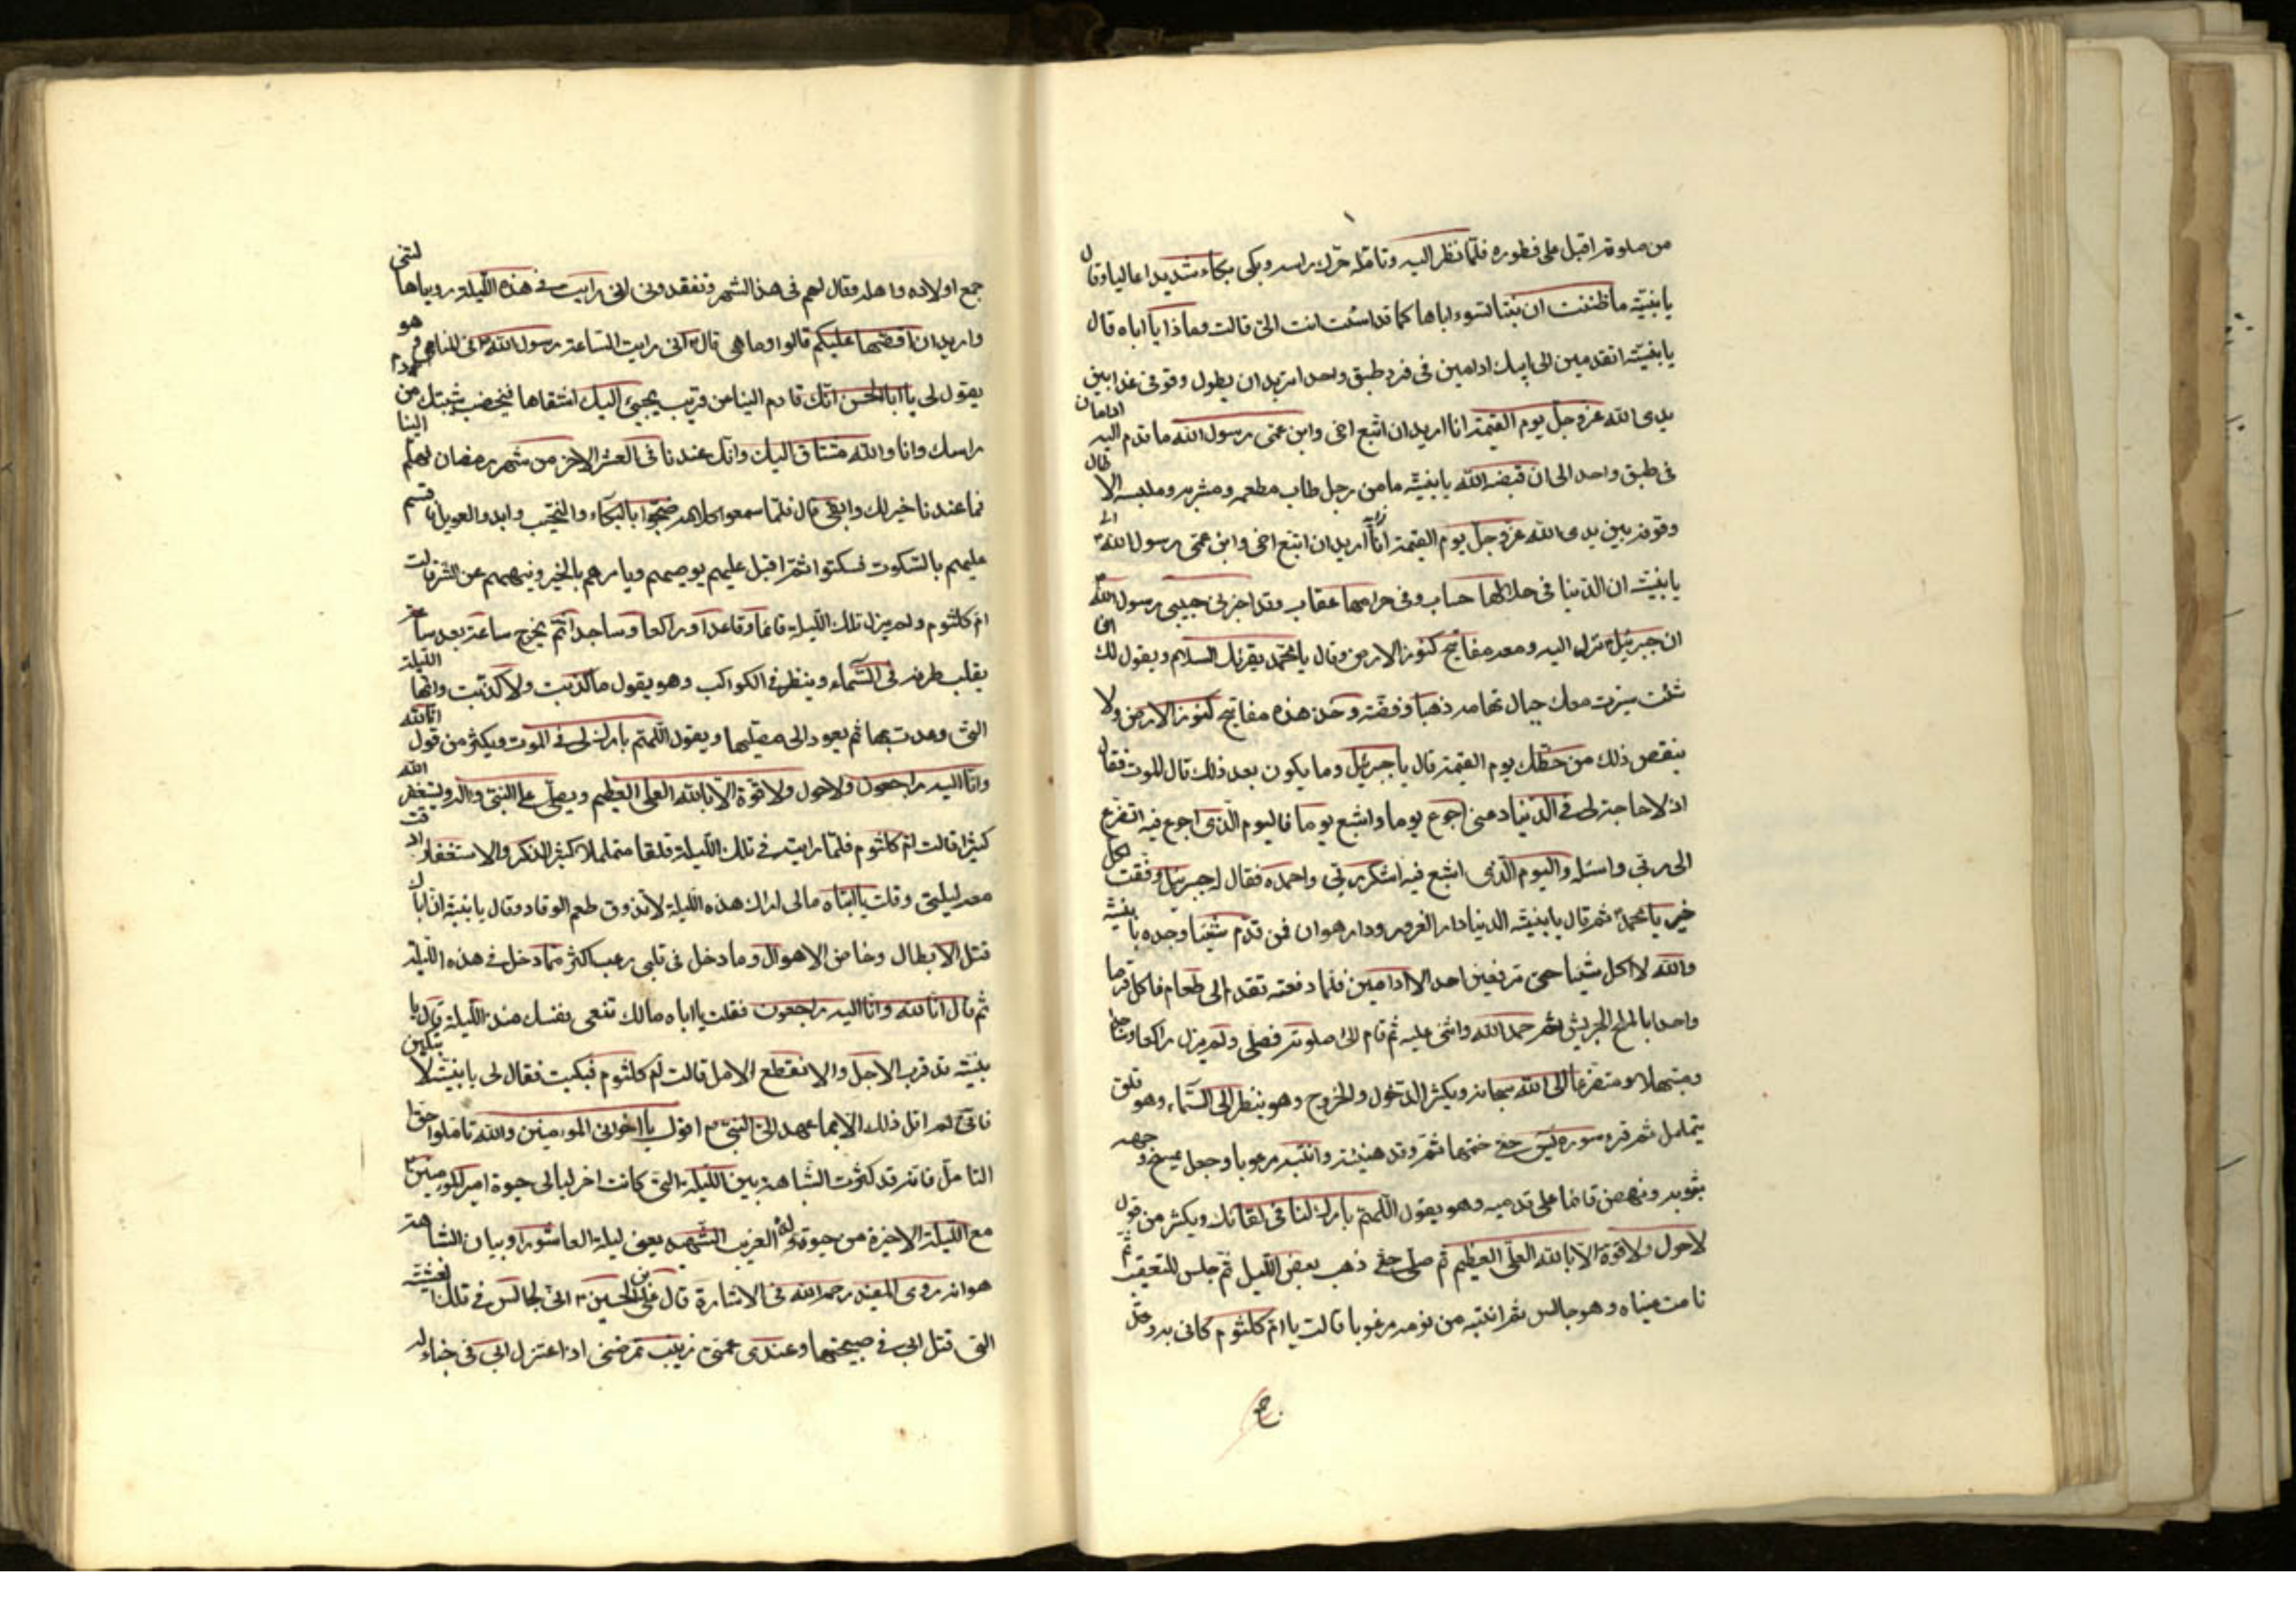 من صلوته اقبل على فطوره فلما نظر اليه وتامله حرك راسه وبكى بكاء شديدا عاليا وقال
يا بنية ما ظننت ان بنتا تسوء اباها كما قد اسئت انت الى قالت وماذا يا اباه قال
يا بنية اتقدمين الى ابيك ادامين في فرد طبق واحد اتريد ان يطول وقوفى غدا بين
يدى الله عز وجل يوم القيمة انا اريد ان اتبع اخى وابن عمى رسول الله ما قدم اليه ادامان
فى طبق واحد الى ان قبضه الله يا بنية ما من رجل طاب مطعمه ومشربه وملبسه الا طال
وقوفه بين يدى الله عز وجل يوم القيمة انا اريد ان اتبع اخى وابن عمى رسول الله
يا بنية ان الدنيا فى حلالها حساب وفى حرامها عقاب وقد اخبرنى حبيبى رسول الله
ان جبرئيل نزل اليه ومعه مفاتيح كنوز الارض وقال يا محمد يقرئك السلام ويقول لك ان
شئت سيرت معك جبال تهامه ذهبا وفضة وخذ هذه مفاتيح كنوز الارض ولا
ينقص ذلك من حظك يوم القيمة قال يا جبرئيل وما يكون بعد ذلك قال الموت فقال
اذ لا حاجة لى فى الدنيا دعنى اجوع يوما واشبع يوما فاليوم الذى اجوع فيه اتضرع
الى ربى واسئله واليوم الذى اشبع فيه اشكر ربى واحمده فقال له جبرئيل وفقت لكل
خير يا محمد ثم قال يا بنية الدنيا دار الغرور ودار هوان فمن قدم شيئا وجده يا بنية
والله لا اكل شيئا حتى ترفعين احد الادامين فلما رفعته تقدم الى طعام فاكل قرصا
واحدا بالملح الجريش ثم حمد الله واثنى عليه ثم قام الى صلوته فصلى ولم يزل راكعا وساجدا
ومبتهلا ومتضرعا الى الله سبحانه ويكثر الدخول والخروج وهو ينظر الى السماء وهو قلق
يتململ ثم قرء سورة يس حتى ختمها ثم رقد هنيئة وانتبه مرعوبا وجعل يمسح وجهه
بثوبه ونهض قائما على قدميه وهو يقول اللهم بارك لنا فى لقائك ويكثر من قول
لا حول ولا قوة الا بالله العلى العظيم ثم صلى حتى ذهب بعض الليل ثم جلس للتعقيب ثم
نامت عيناه وهو جالس ثم انتبه من نومه مرعوبا قالت يا ام كلثوم كانى به وقد
جمع اولاده واهله وقال لهم فى هذا الشهر تفقدونى انى رايت فى هذه الليلة رؤياها لتنى
واريد ان اقصها عليكم قالوا وما هى قال انى رايت الساعة رسول الله فى المنام وهو
يقول لى يا ابا الحسن انك قادم الينا من قريب يجيئ اليك اشقاها فيخضب شيبتك من دم
راسك وانا والله مشتاق اليك وانك عندنا فى العشر الاخر من شهر رمضان فهلم الينا
فما عندنا خير لك وابقى قال فلما سمعوا كلامه ضجوا بالبكاء والنحيب وابدو العويل فاقسم
عليهم بالسكوت فسكتوا ثم اقبل عليهم يوصيهم ويامرهم بالخير وينهيهم عن الشر قالت
ام كلثوم ولم يزل تلك الليلة قائما وقاعدا وراكعا وساجدا ثم يخرج ساعة بعد ساعة
يقلب طرفه فى السماء وينظر فى الكواكب وهو يقول ما كذبت ولا كذبت وانها الليلة
التى وعدت بها ثم يعود الى مصليها ويقول اللهم بارك لى فى الموت ويكثر من قول انا لله
وانا اليه راجعون ولا حول ولا قوة الا بالله العلى العظيم ويصلى على النبى واله ويستغفر الله
كثيرا قالت ام كلثوم فلما رايته فى تلك الليلة قلقا متململا كثير الذكر والاستغفار ارقت
معه ليلتى وقلت يا ابتاه مالى اراك هذه الليلة لا تذوق طعم الرقاد وقال يا بنية ان اباك
قتل الابطال وخاض الاهوال وما دخل فى قلبى رعب اكثر مما دخل فى هذه الليلة
ثم قال انا لله وانا اليه راجعون فقلت يا اباه مالك تنعى نفسك منذ الليلة قال يا
بنية قد قرب الاجل والانقطع الامل قالت ام كلثوم فبكيت فقال لى يا بنية لا تبكين
فانى لم اقل ذلك الا بما عهد الى النبى اقول يا اخوانى المؤمنين والله تاملوا حق
التامل فانه قد كثرت الشباهة بين الليلة التى كانت اخر ليالى حيوة امير المؤمنين
مع الليلة الاخيرة من حيوة ولده الغريب الشهيد يعنى ليلة العاشورا وبيان الشباهة
هو انه روى المفيد رحمه الله فى الارشاد قال على بن الحسين انى لجالس فى تلك العشية
التى قتل ابى فى صبيحتها وعندى عمتى زينب تمرضنى اذ اعتزل ابى فى خباء له